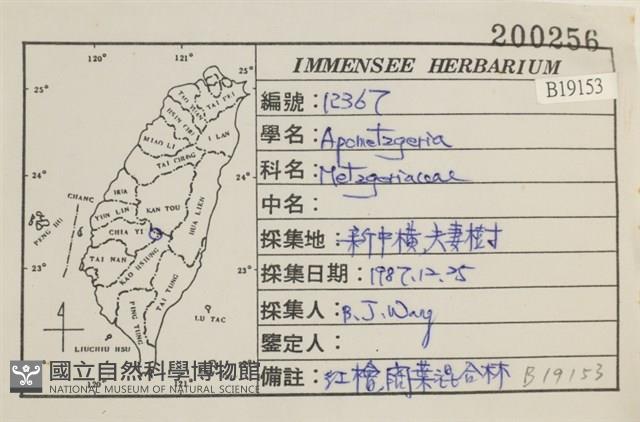 200256
IMMENSEE HERBARIUM
B19153
編號：12367
學名：Apometzgeria
科名：Metzgeriaceae
中名：
採集地：新中橫,夫妻樹
採集日期：1987.12.25
採集人：B.J.Wang
鑒定人：
備註：紅檜,闊葉混合林 B19153
120° 121°
25° 25°
TAO YUAN
TAI PEI
HSIN CHU
I LAN
MIAO LI
TAI CHUNG
24° 24°
CHANG HUA
NAN TOU
HUA LIEN
YUN LIN
CHIA YI
PENG HU
TAI NAN
KAO HSIUNG
23° 23°
TAI TUNG
PING TUNG
LU TAO
LIUCHIU HSU
120° 121°
國立自然科學博物館
NATIONAL MUSEUM OF NATURAL SCIENCE